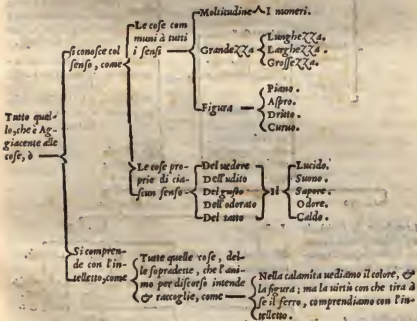 Tutto quel-
lo, che è Ag-
giacente alle
cose, ò
si conosce col
senso, come
Le cose com
muni à tutti
i sensi
Moltitudine
I numeri.
GrandeZZa
LungheZZa.
LargheZZa.
GrosseZZa.
Figura
Piano.
Aspro.
Dritto.
Curuo.
Le cose pro-
prie di cia-
scun senso
Del uedere
Dell'udito
Del gusto
Dell'odorato
Del tatto
Il
Lucido.
Suono.
Sapore.
Odore.
Caldo.
Si compren-
de con l'in-
telletto, come
Tutte quelle cose, del-
le sopradette, che l'ani-
mo per discorso intende
& raccoglie, come
Nella calamita uediamo il colore, &
la figura; ma la uirtù con che tira à
se il ferro, comprendiamo con l'in-
telletto.